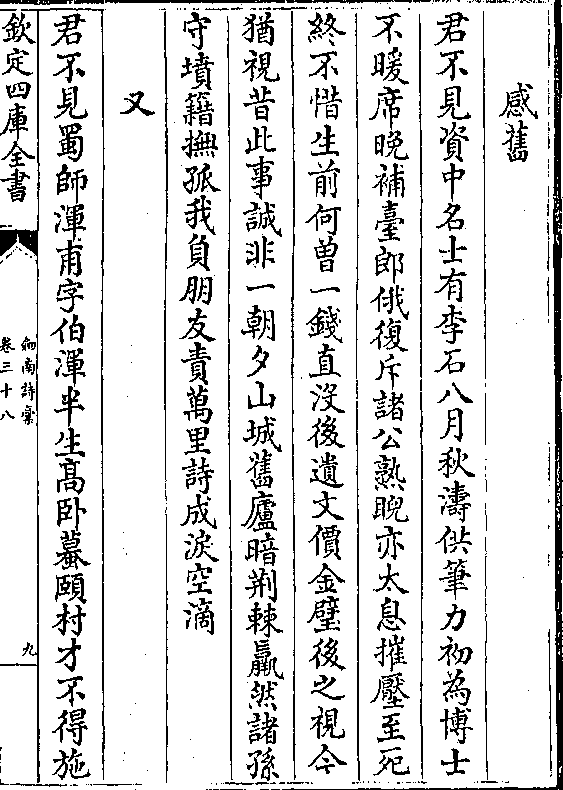 感舊
君不見資中名士有李石八月秋濤供筆力初為博士
不暖席晚補臺郎俄復斥諸公熟睨亦太息摧壓至死
終不惜生前何曾一錢直沒後遺文價金璧後之視今
猶視昔此事誠非一朝夕山城舊廬暗荆棘羸然諸孫
守墳籍撫孤我負朋友責萬里詩成淚空滴
又
君不見蜀師渾甫字伯渾半生髙卧蟇頤村才不得施
欽定四庫全書
劒南詩稾
卷三十八
九